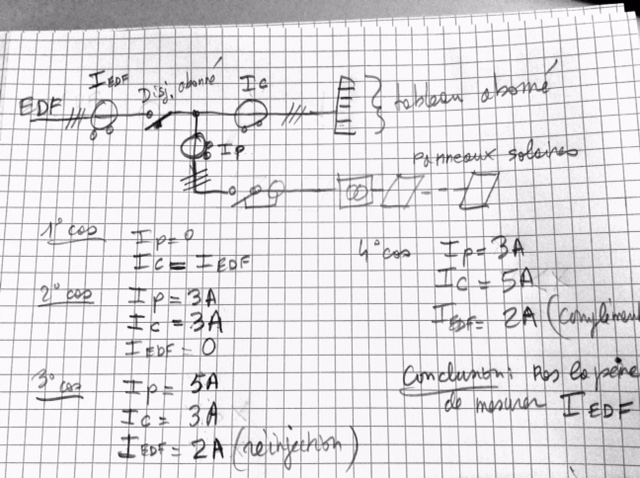 I EDF
Disj. abonné
Ic
EDF
tableau abonné
Ip
Panneaux solaires
1° cas
Ip = 0
Ic = I EDF
2° cas
Ip = 3A
Ic = 3A
I EDF = 0
3° cas
Ip = 5A
Ic = 3A
I EDF = 2A (réinjection)
4° cas
Ip = 3A
Ic = 5A
I EDF = 2A (complément
Conclusion : Pas la peine
de mesurer I EDF